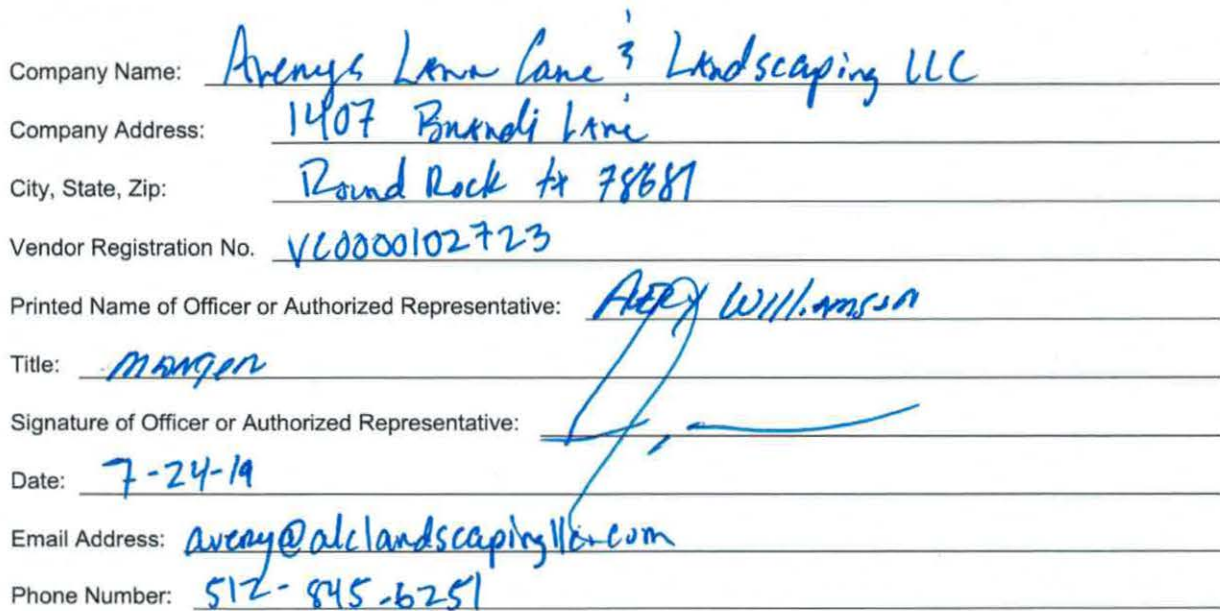 Company Name: Averys Lawn Care & Landscaping LLC
Company Address: 1407 Brandi Lane
City, State, Zip: Round Rock tx 78681
Vendor Registration No. VC0000102723
Printed Name of Officer or Authorized Representative: Avery Williamson
Title: manger
Signature of Officer or Authorized Representative:
Date: 7-24-19
Email Address: avery@alclandscapingllc.com
Phone Number: 512-845-6251